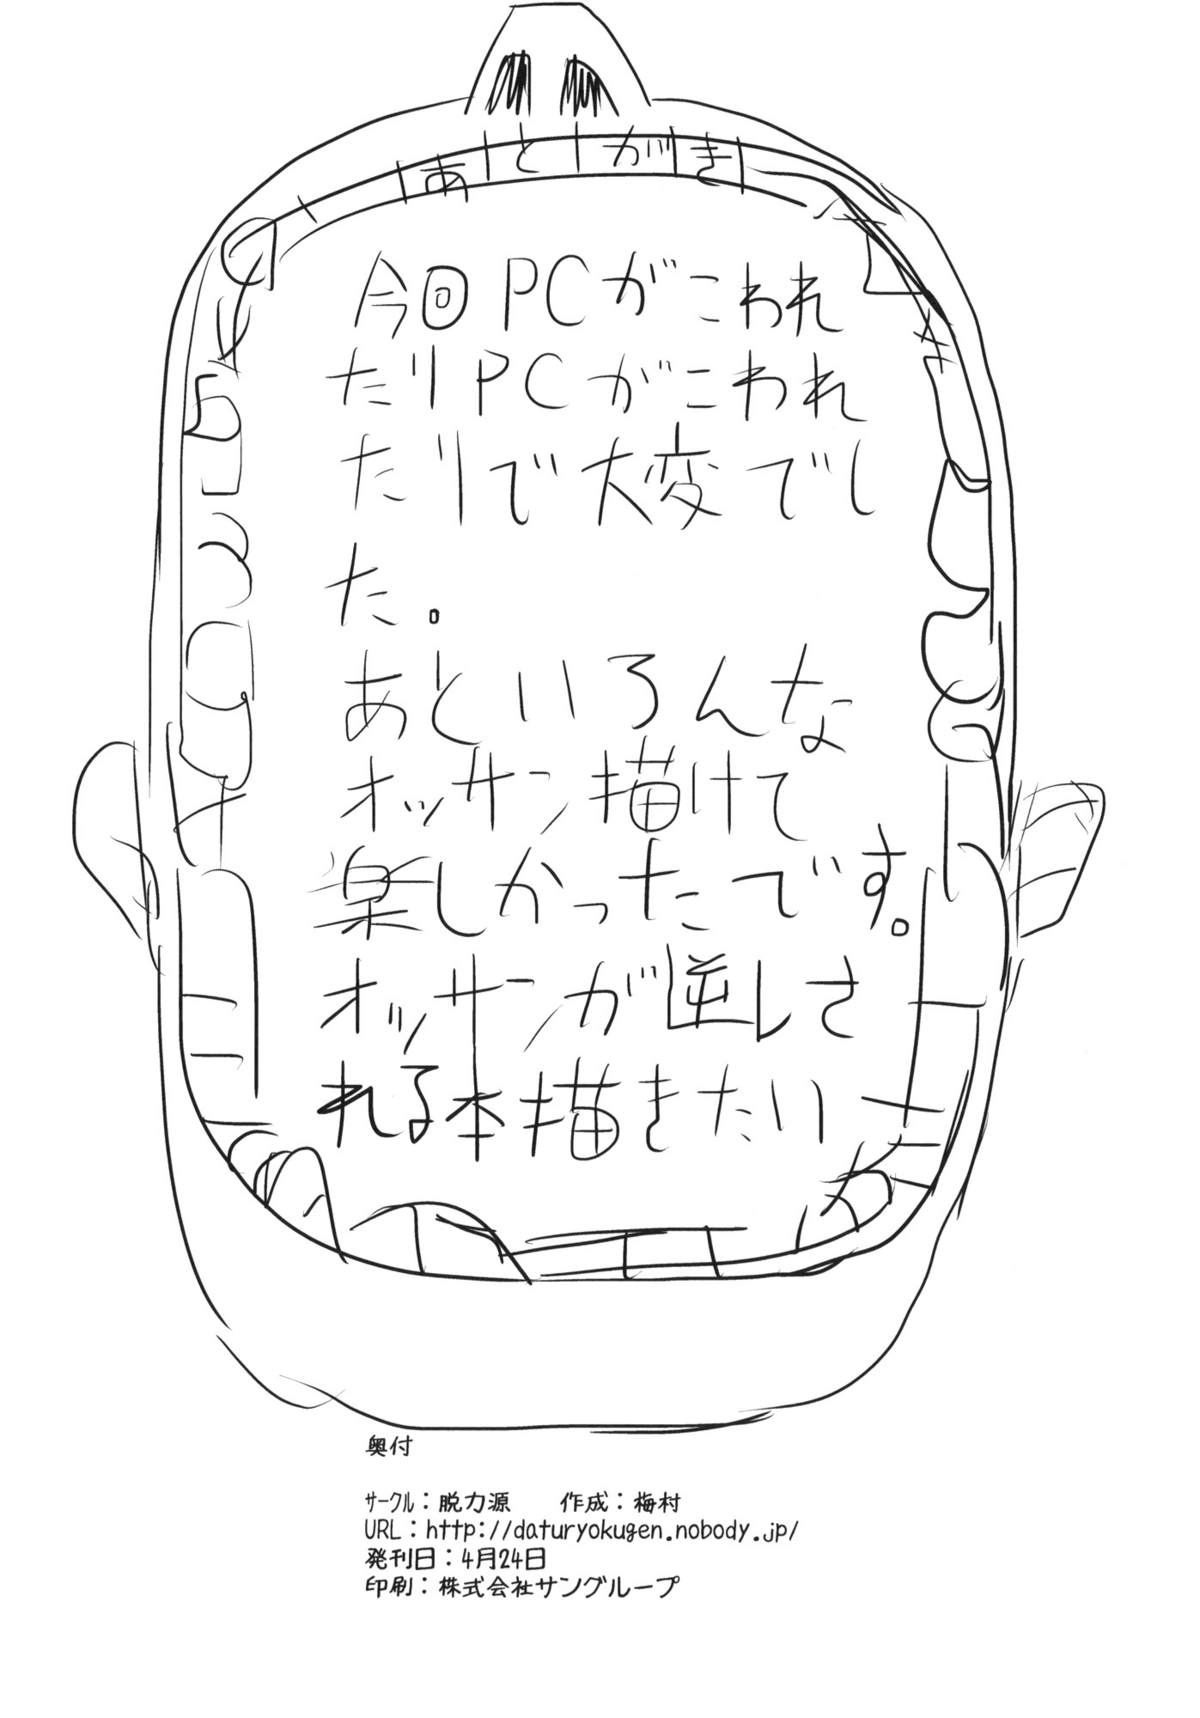 あとがき
今回PCがこわれ
たりPCがこわれ
たりで大変でし
た。
あといろんな
オッサン描けて
楽しかったです。
オッサンが逆しさ
れる本描きたい
奥付
ｻｰｸﾙ：脱力源　　作成：梅村
URL：http://daturyokugen.nobody.jp/
発刊日：4月24日
印刷：株式会社サングループ